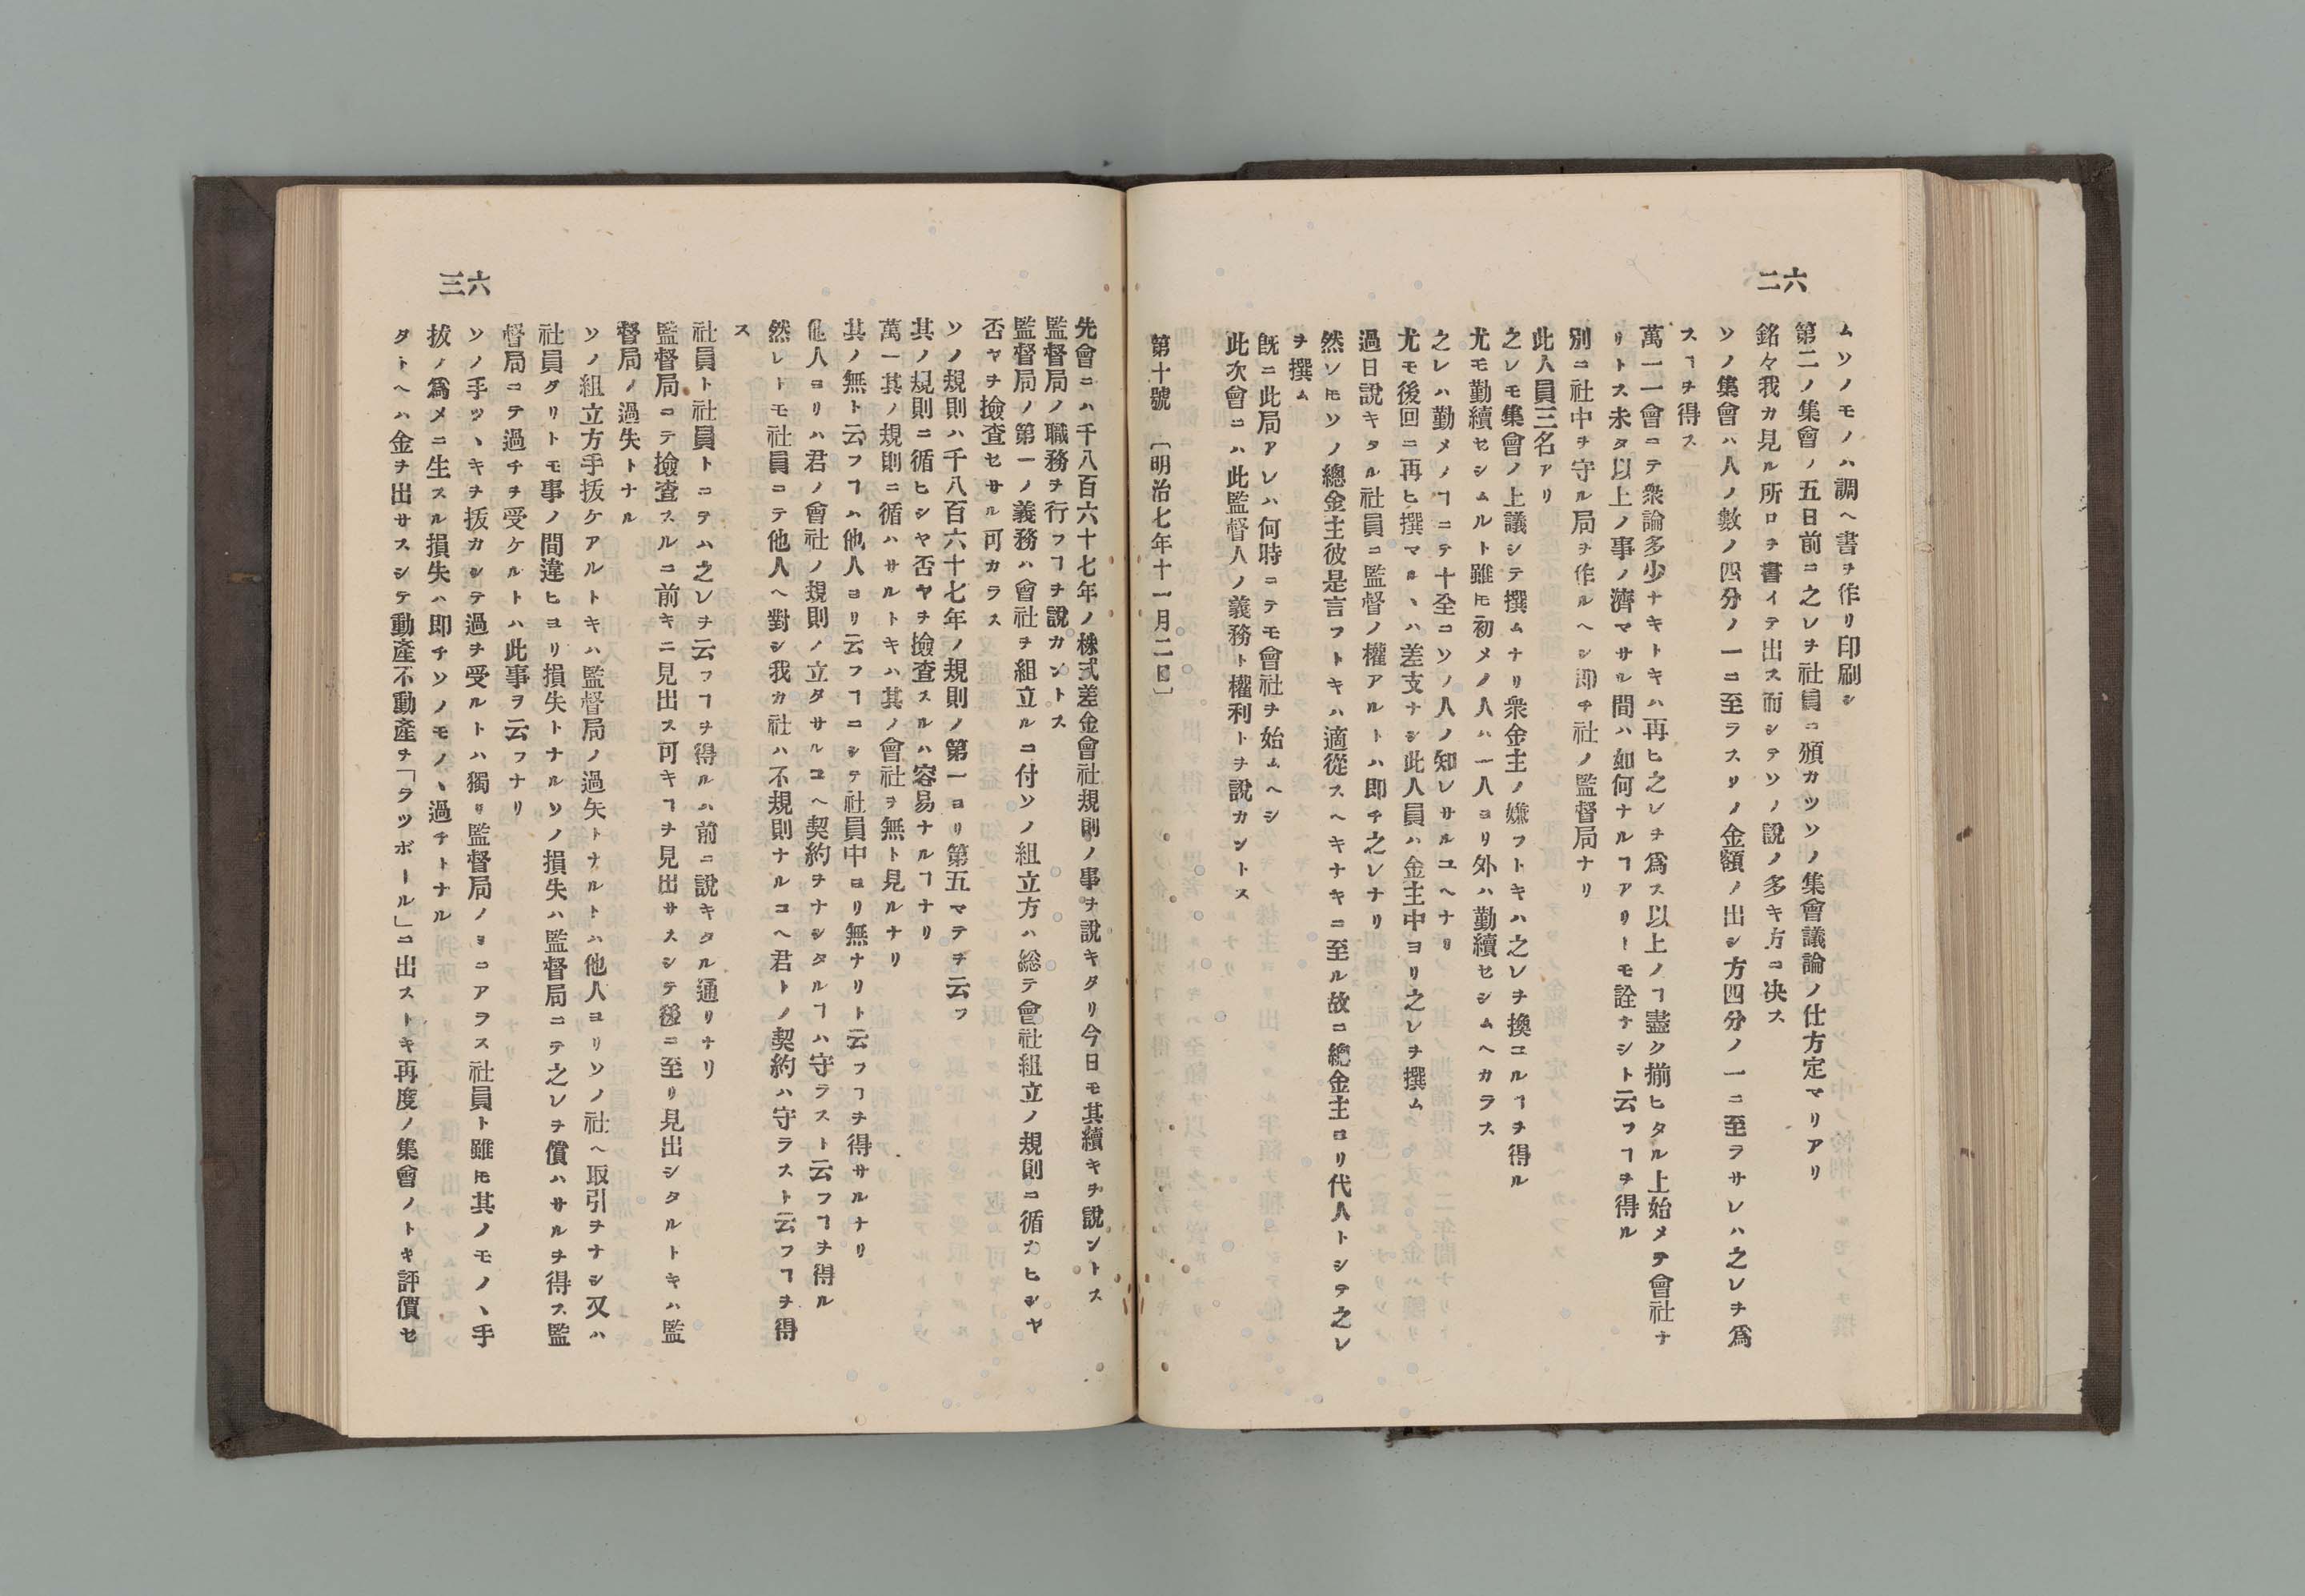 六二
ムソノモノハ調ヘ書ヲ作リ印刷シ
第二ノ集會ノ五日前ニ之レヲ社員ニ頒カツソノ集會議論ノ仕方定マリアリ
銘々我カ見ル所ロヲ書イテ出ス而シテソノ說ノ多キ方ニ决ス
ソノ集會ハ人ノ數ノ四分ノ一ニ至ラスソノ金額ノ出シ方四分ノ一ニ至ラサレハ之レヲ爲
スヿヲ得ス
萬一一會ニテ衆論多少ナキトキハ再ヒ之レヲ爲ス以上ノヿ盡ク揃ヒタル上始メテ會社ナ
リトス未タ以上ノ事ノ濟マサル間ハ如何ナルヿアリトモ詮ナシト云フヿヲ得ル
別ニ社中ヲ守ル局ヲ作ルヘシ即チ社ノ監督局ナリ
此人員三名アリ
之レモ集會ノ上議シテ撰ムナリ衆金主ノ嫌フトキハ之レヲ換ユルヿヲ得ル
尤モ勤續セシムルト雖𪜈初メノ人ハ一人ヨリ外ハ勤續セシムヘカラス
之レハ勤メノヿニテ十全ニソノ人ノ知レサルユヘナリ
尤モ後回ニ再ヒ撰マルヽハ差支ナシ此人員ハ金主中ヨリ之レヲ撰ム
過日說キタル社員ニ監督ノ權アルトハ即チ之レナリ
然レ𪜈ソノ總金主彼是言フトキハ適從スヘキナキニ至ル故ニ總金主ヨリ代人トシテ之レ
ヲ撰ム
旣ニ此局アレハ何時ニテモ會社ヲ始ムヘシ
此次會ニハ此監督人ノ義務ト權利トヲ說カントス
第十號 〔明治七年十一月二日〕
六三
先會ニハ千八百六十七年ノ株式差金會社規則ノ事ヲ說キタリ今日モ其續キヲ說ントス
監督局ノ職務ヲ行フヿヲ說カントス
監督局ノ第一ノ義務ハ會社ヲ組立ルニ付ソノ組立方ハ總テ會社組立ノ規則ニ循カヒシヤ
否ヤヲ撿査セサル可カラス
ソノ規則ハ千八百六十七年ノ規則ノ第一ヨリ第五マテヲ云フ
其ノ規則ニ循ヒシヤ否ヤヲ撿査スルハ容易ナルヿナリ
萬一其ノ規則ニ循ハサルトキハ其ノ會社ヲ無ト見ルナリ
其ノ無ト云フヿハ他人ヨリ云フヿニシテ社員中ヨリ無ナリト云フヿヲ得サルナリ
他人ヨリハ君ノ會社ノ規則ノ立タサルユヘ契約ヲナシタルヿハ守ラスト云フヿヲ得ル
然レトモ社員ニテ他人ヘ對シ我カ社ハ不規則ナルユヘ君トノ契約ハ守ラスト云フヿヲ得
ス
社員ト社員トニテハ之レヲ云フヿヲ得ルハ前ニ說キタル通リナリ
監督局ニテ撿査スルニ前キニ見出ス可キヿヲ見出サスシテ後ニ至リ見出シタルトキハ監
督局ノ過失トナル
ソノ組立方手拔ケアルトキハ監督局ノ過失トナルトハ他人ヨリソノ社ヘ取引ヲナシ又ハ
社員タリトモ事ノ間違ヒヨリ損失トナルソノ損失ハ監督局ニテ之レヲ償ハサルヲ得ス監
督局ニテ過チヲ受ケルトハ此事ヲ云フナリ
ソノ手ツヽキヲ拔カシテ過ヲ受ルトハ獨リ監督局ノミニアラス社員ト雖𪜈其ノモノヽ手
拔ノ爲メニ生スル損失ハ即チソノモノヽ過チトナル
タトヘハ金ヲ出サスシテ動產不動產ヲ「ラツポール」ニ出ストキ再度ノ集會ノトキ評價セ